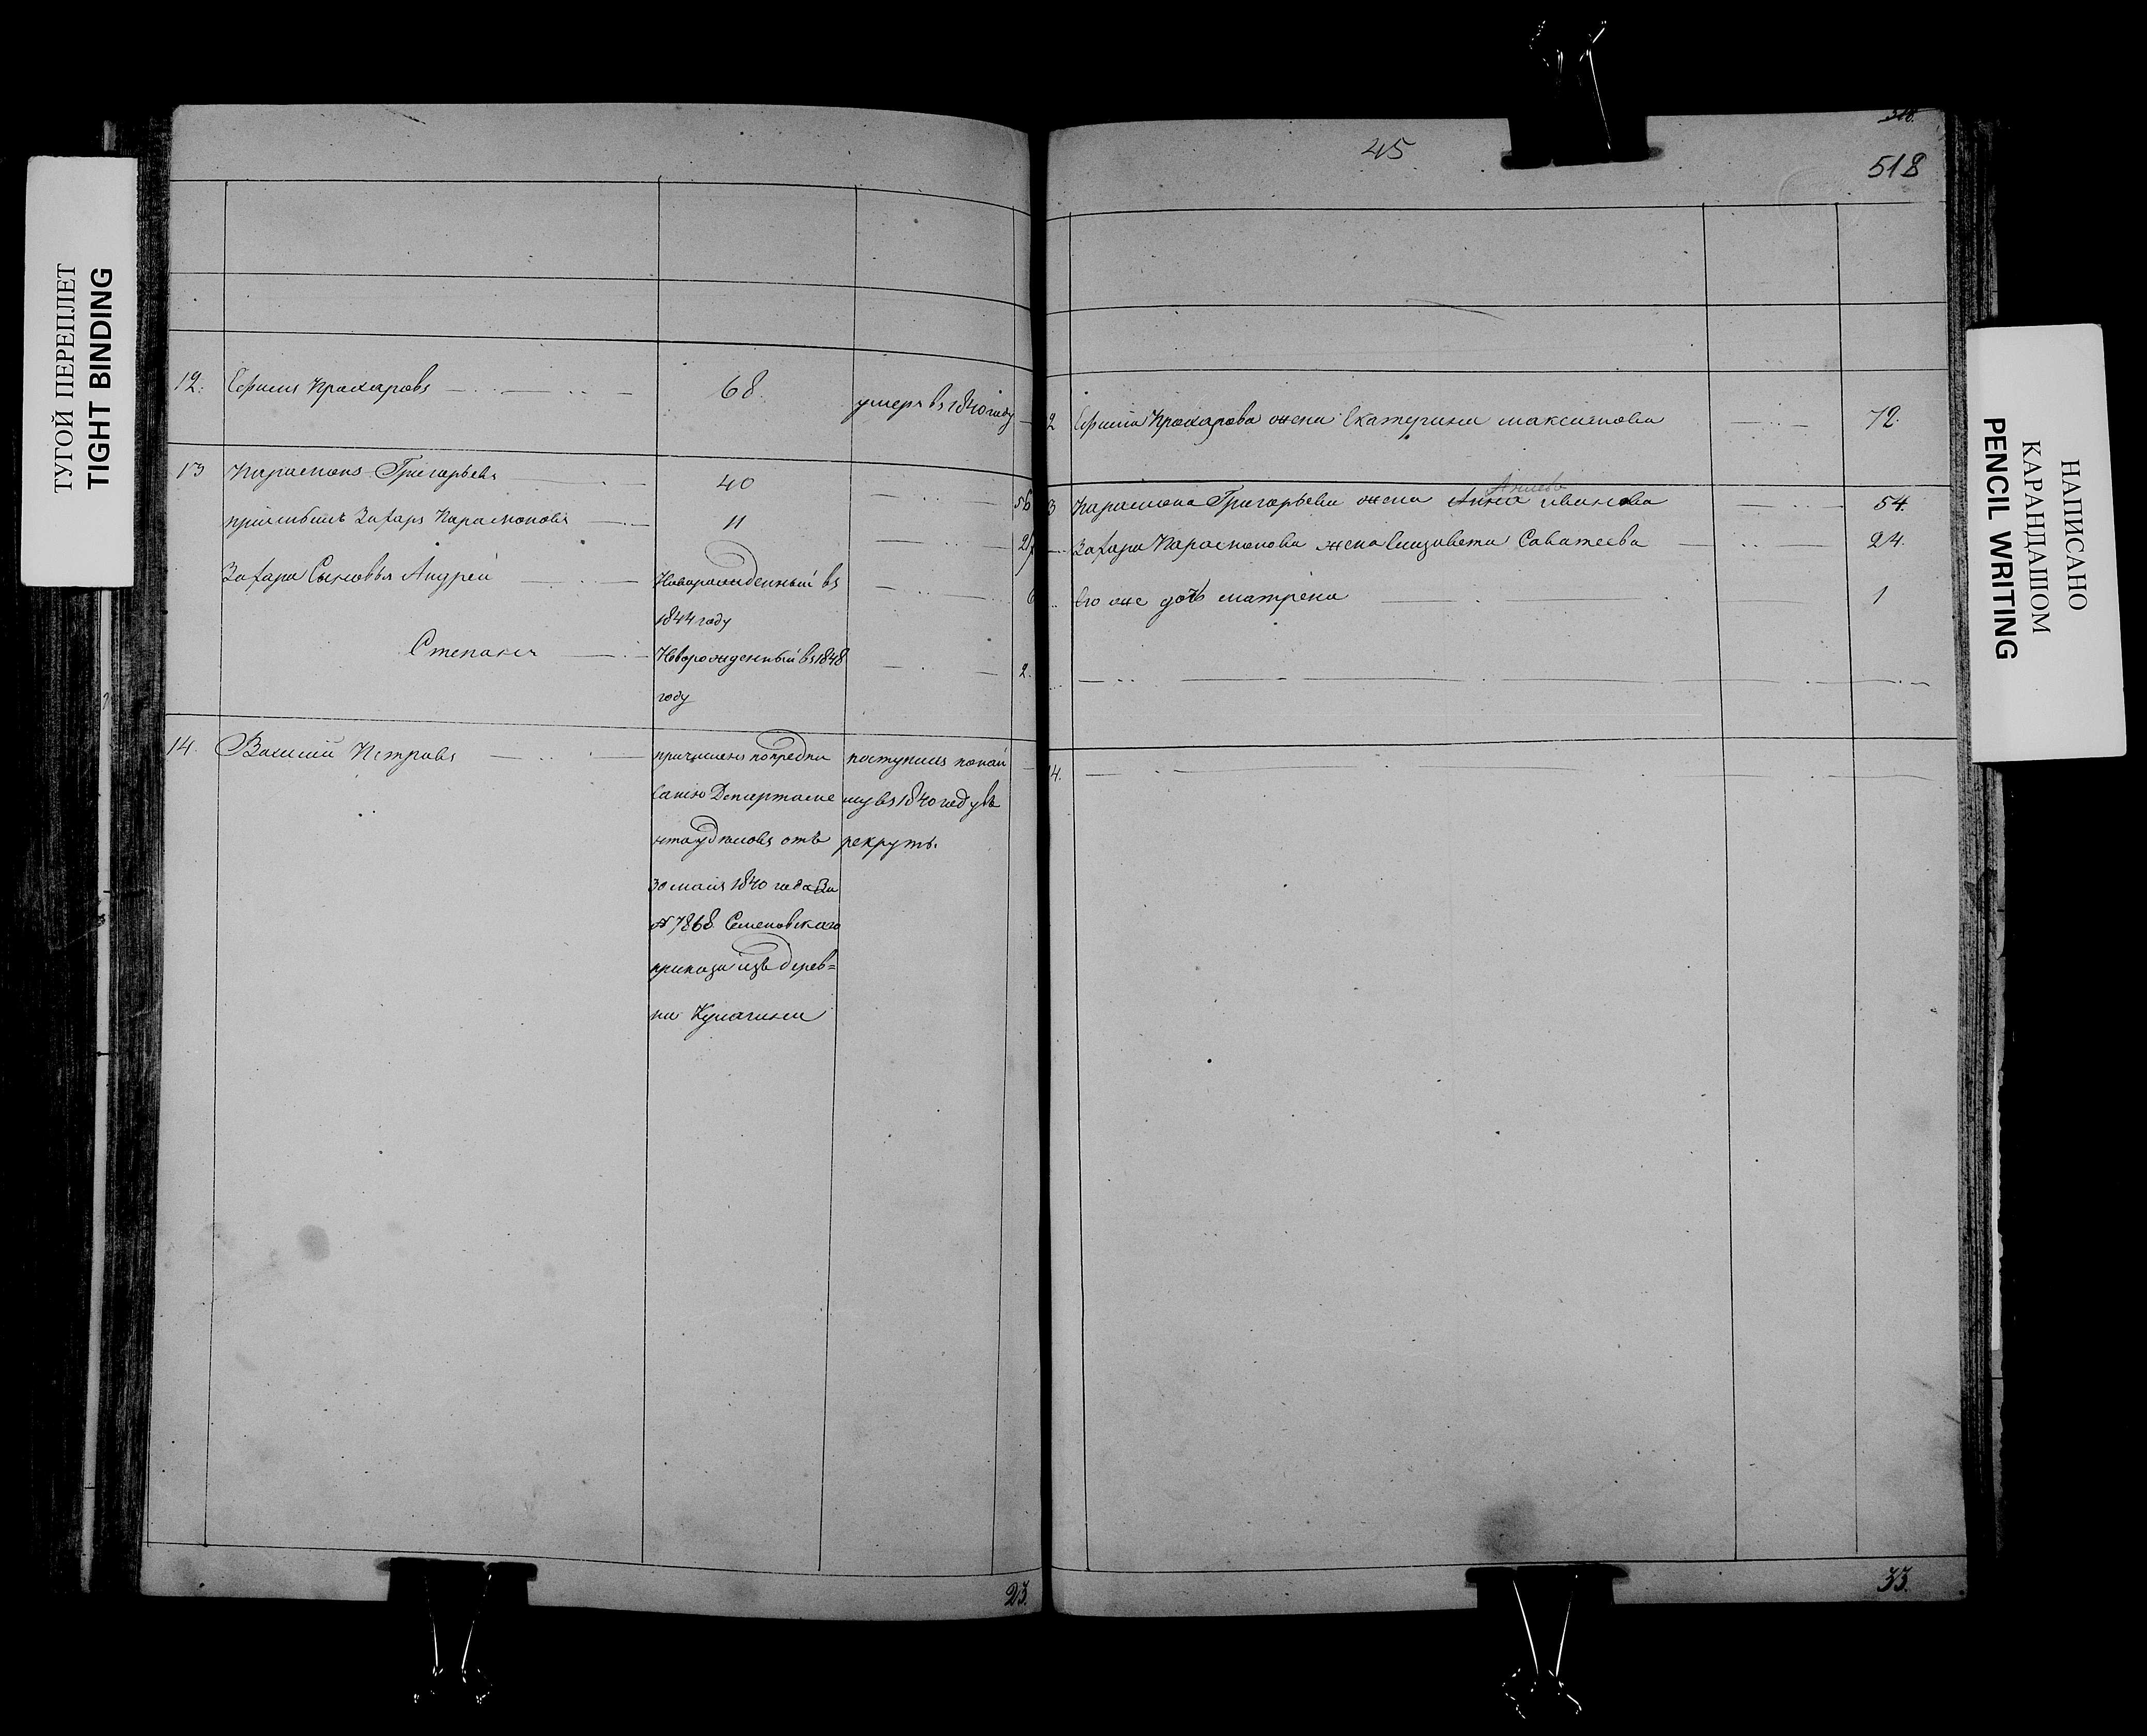 ТУГОЙ ПЕРЕПЛЕТ
TIGHT BINDING
12. Ефимъ Прохаровъ 68. умеръ въ 1840 году
13 Парамонъ Григорьевъ 40 56
Захаръ Парамоновъ 11
Захара Сыновья Андрей Новорожденный въ 1844 году
Степанъ Новорожденный въ 1848 году 2.
14. Василий Петровъ
причисленъ по предпи
санію Департаме
нта удѣловъ отъ
30 мая 1840 года за
№ 7868 Семеновскаго
приказа изъ дерев=
ни
поступилъ по най
му въ 1840 году въ
рекруты.
23.
45
518
2 Ефима Прохарова жена Екатерина Максимова 72.
3 Парамона Григорьева жена Анна Иванова 54.
Захара Парамонова жена Елизавета Саватеева 24.
Его же дочь Матрена 1
14.
33.
НАПИСАНО
КАРАНДАШОМ
PENCIL WRITING